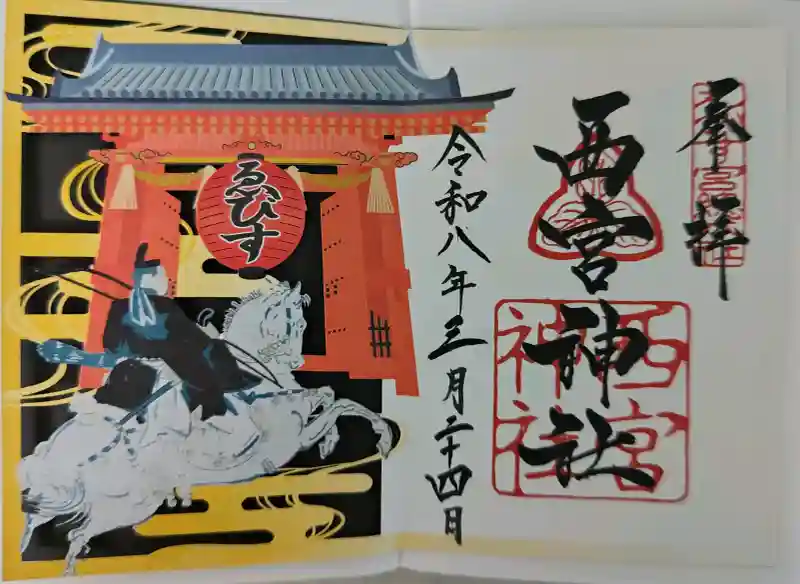 奉拝
西宮神社
西宮
神社
令和八年三月二十四日
ゑびす